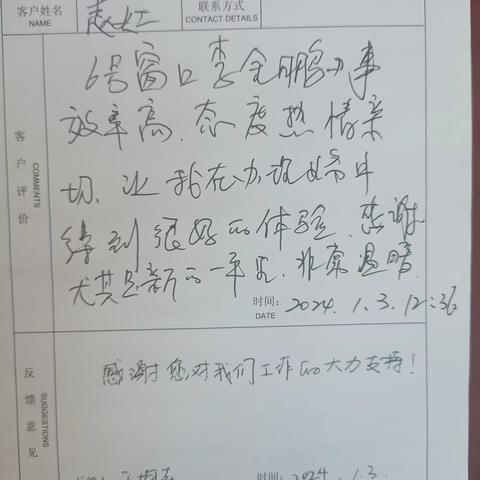 客户姓名
NAME
赵红
联系方式
CONTACT DETAILS
客户评价
COMMENTS
6号窗口李全鹏办事
效率高、态度热情亲
切、让我在办理业务中
得到很好的体验、感谢
尤其是新的一年里、非常温暖
时间:
DATE
2024.1.3.12:36
反馈意见
SUGGESTIONS
感谢您对我们工作的大力支持!
时间:
2024.1.3.